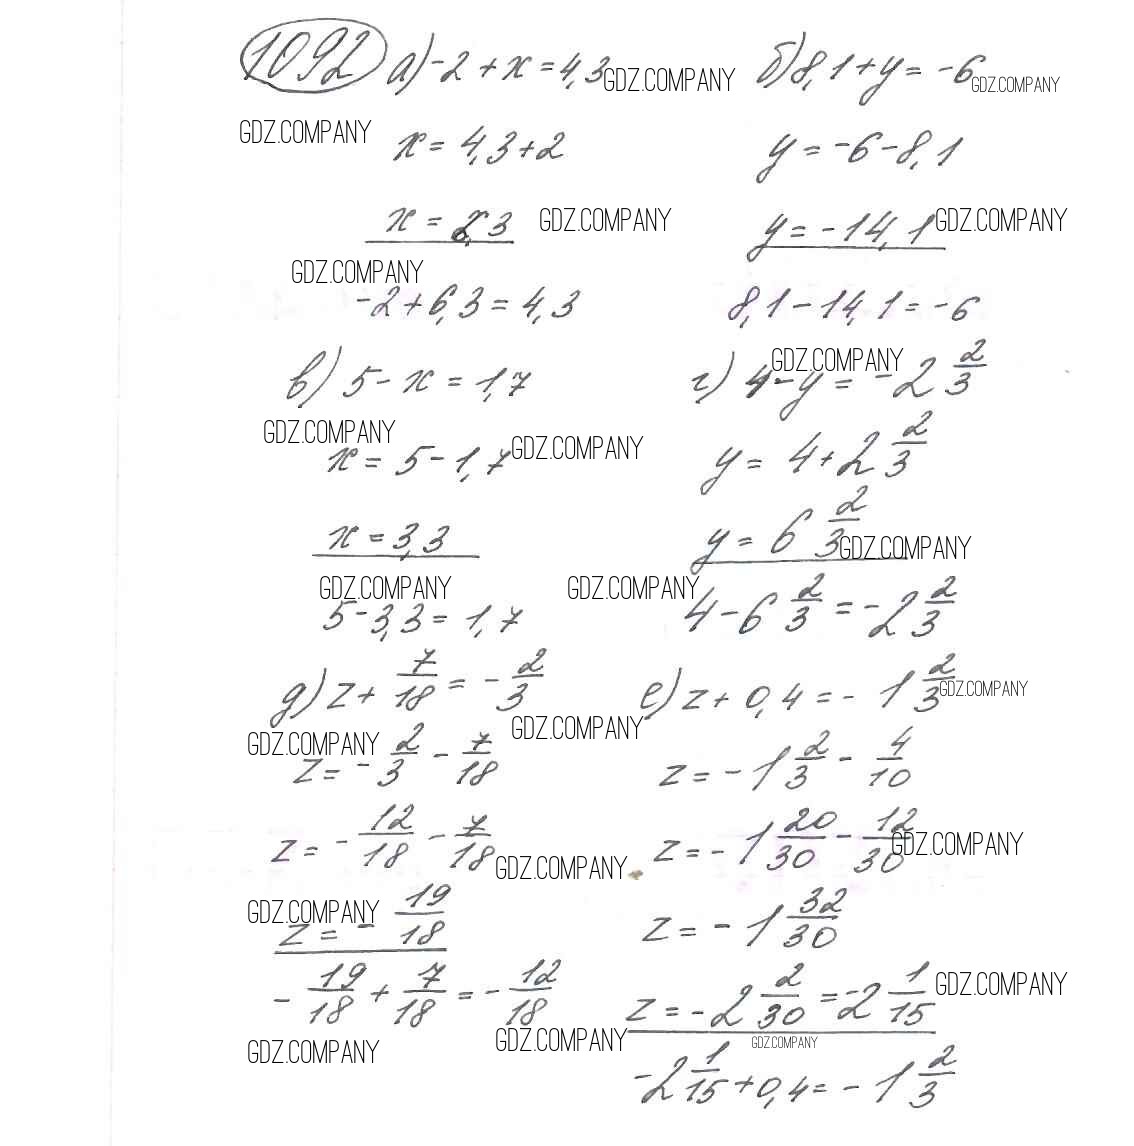 1092 а) -2 + x = 4,3 GDZ.COMPANY б) 8,1 + y = -6 GDZ.COMPANY
GDZ.COMPANY x = 4,3 + 2 y = -6 - 8,1
x = 2,3 GDZ.COMPANY y = -14,1 GDZ.COMPANY
GDZ.COMPANY
-2 + 6,3 = 4,3 8,1 - 14,1 = -6
в) 5 - x = 1,7 г) 4 - y = -2 2/3 GDZ.COMPANY
GDZ.COMPANY x = 5 - 1,7 GDZ.COMPANY y = 4 + 2 2/3
x = 3,3 y = 6 2/3 GDZ.COMPANY
GDZ.COMPANY GDZ.COMPANY
5 - 3,3 = 1,7 4 - 6 2/3 = -2 2/3
д) z + 7/18 = -2/3 е) z + 0,4 = -1 2/3 GDZ.COMPANY
GDZ.COMPANY GDZ.COMPANY
z = -2/3 - 7/18 z = -1 2/3 - 4/10
z = -12/18 - 7/18 GDZ.COMPANY z = -1 20/30 - 12/30 GDZ.COMPANY
GDZ.COMPANY z = -19/18 z = -1 32/30
-19/18 + 7/18 = -12/18 z = -2 2/30 = -2 1/15 GDZ.COMPANY
GDZ.COMPANY GDZ.COMPANY GDZ.COMPANY
-2 1/15 + 0,4 = -1 2/3